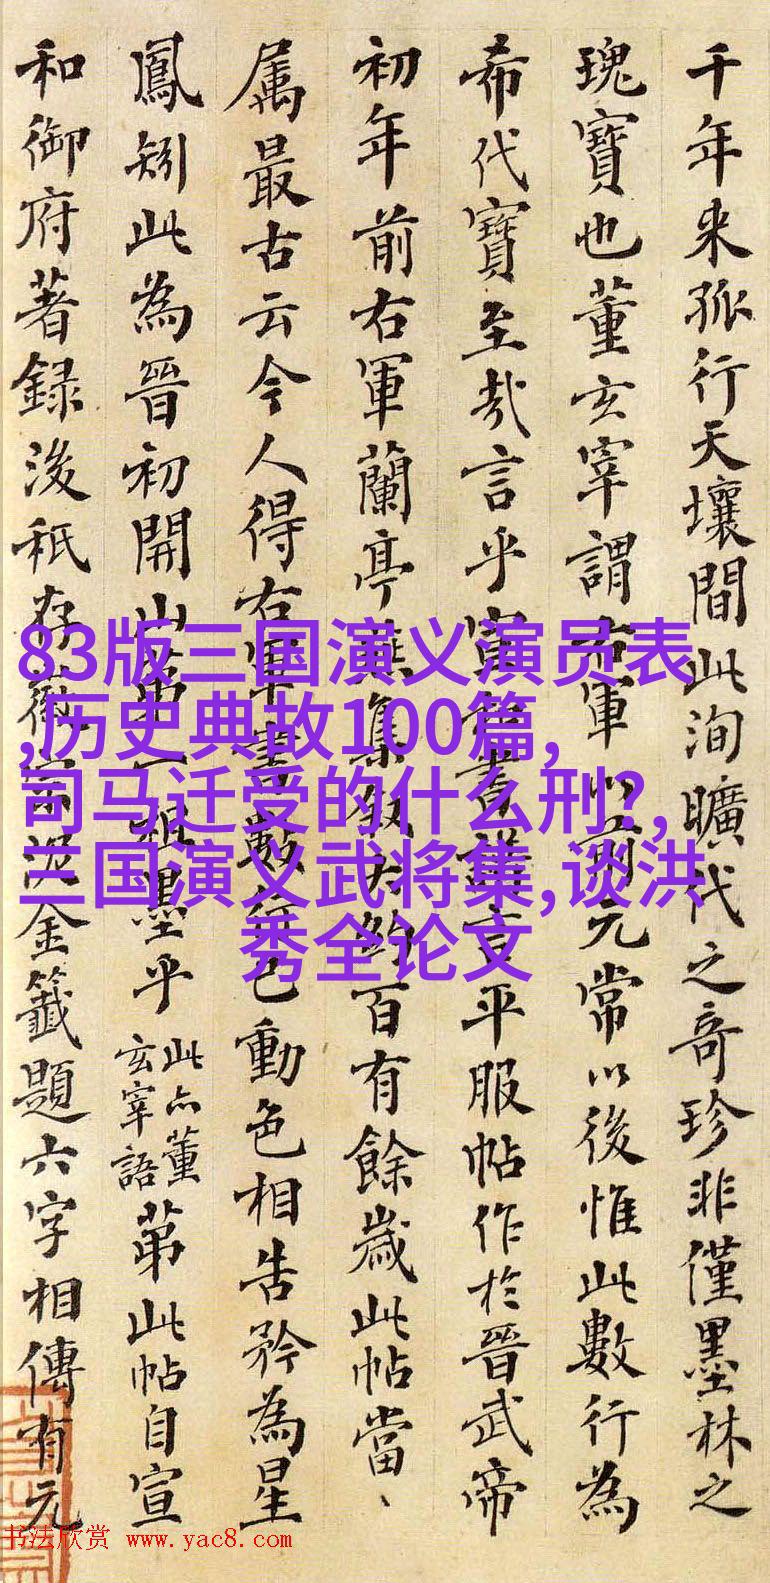 千年来孤行天壤間此洵曠代之奇珍非僅墨林之
瑰寶也董玄宰謂右軍以前元常以後惟此數行為
希代寶至哉言乎書言平服帖作於晉武帝
初年前右軍蘭亭燕集敘大約百有餘歲此帖當、
属最古云今人得右軍書數行已動色相告矜為星
鳳矧此為晉初開山第一祖墨乎此亦董玄宰語第此帖自宣
和御府著録後秖存徽宗泥金籤題六字相傳有元
83版三国演义演员表
,历史典故100篇,
司马迁受的什么刑?,
三国演义武将集,谈洪
秀全论文
书法欣赏 www.yac8.com